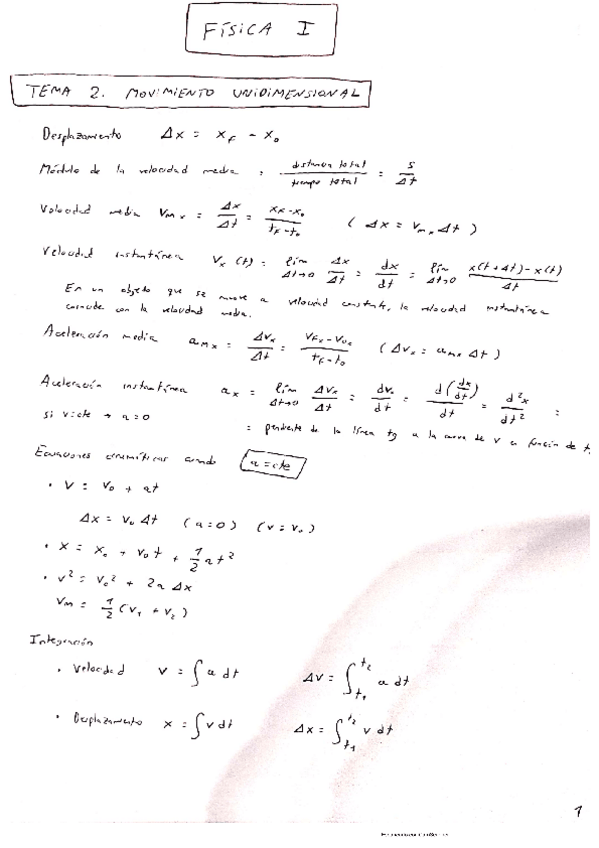 FÍSICA I
TEMA 2. MOVIMIENTO UNIDIMENSIONAL
Desplazamiento Δx = x_F - x_0
Módulo de la velocidad media = distancia total / tiempo total = s / Δt
Velocidad media V_mx = Δx/Δt = (x_F - x_0)/(t_F - t_0) (Δx = V_mx Δt)
Velocidad instantánea V_x (t) = lím Δt→0 Δx/Δt = dx/dt = lím Δt→0 (x(t+Δt) - x(t))/Δt
En un objeto que se mueve a velocidad constante, la velocidad instantánea
coincide con la velocidad media.
Aceleración media a_mx = Δv_x/Δt = (V_Fx - V_0x)/(t_F - t_0) (Δv_x = a_mx Δt)
Aceleración instantánea a_x = lím Δt→0 Δv_x/Δt = dv_x/dt = d(dx/dt)/dt = d²x/dt² =
si v=cte → a=0 = pendiente de la línea tg a la curva de v en función de t
Ecuaciones cinemáticas cuando a=cte
• V = V_0 + at
Δx = V_0 Δt (a=0) (v=v_0)
• x = x_0 + v_0 t + 1/2 a t²
• v² = v_0² + 2a Δx
V_m = 1/2 (v_1 + v_2)
Integración
• Velocidad v = ∫ a dt Δv = ∫_t1^t2 a dt
• Desplazamiento x = ∫ v dt Δx = ∫_t1^t2 v dt
1